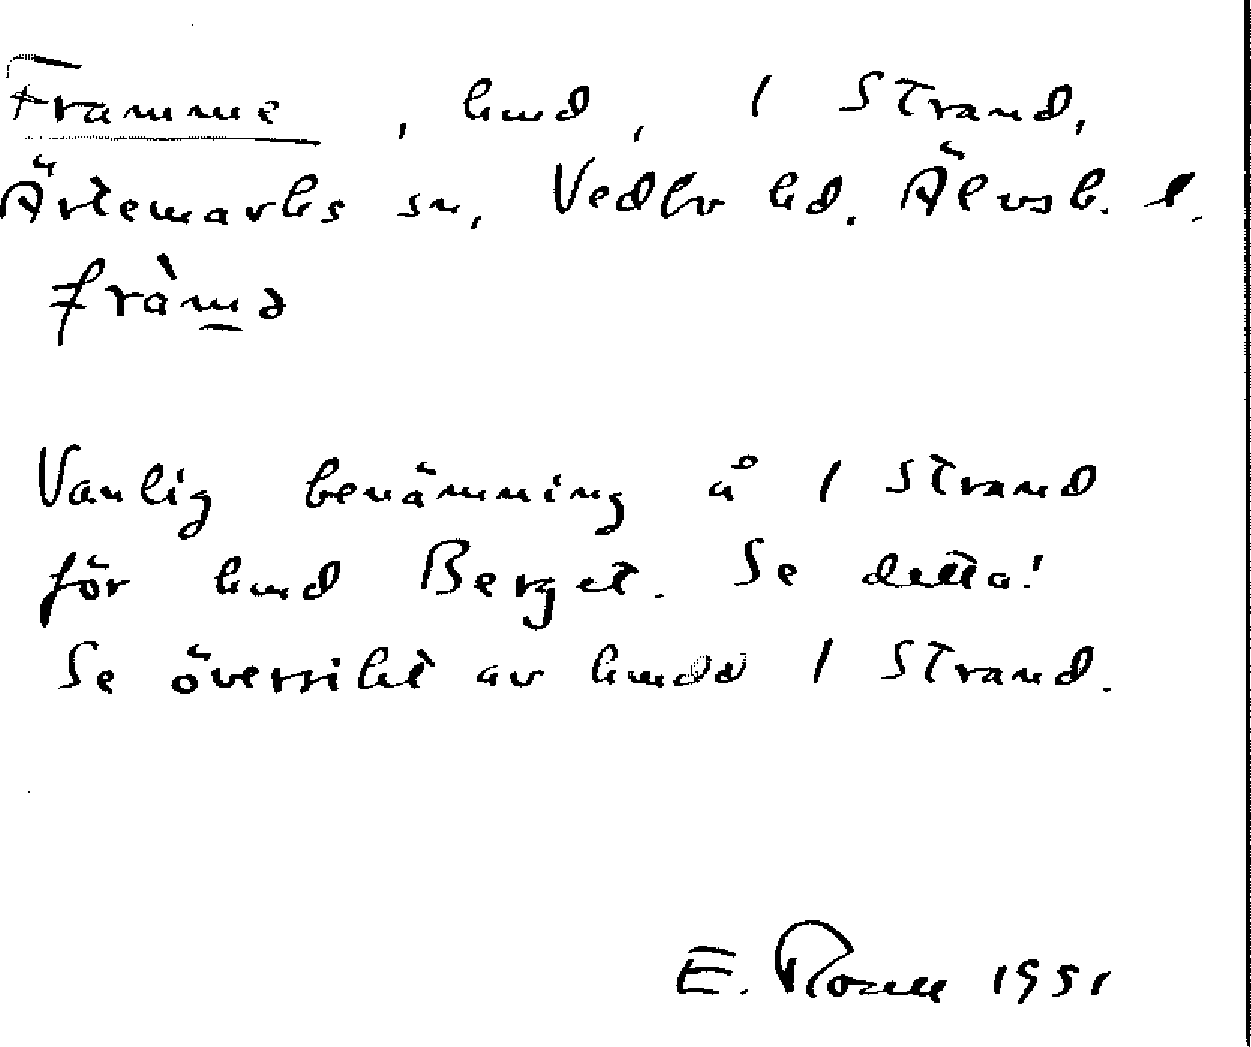 Framme, hmd, 1 Strand,
Ärtemarks sn, Vedbo hd. Älvsb. l.
fràmə
Vanlig benämning å 1 Strand
för hmd Berget. Se detta!
Se översikt av hmdd 1 Strand.
E. 1951